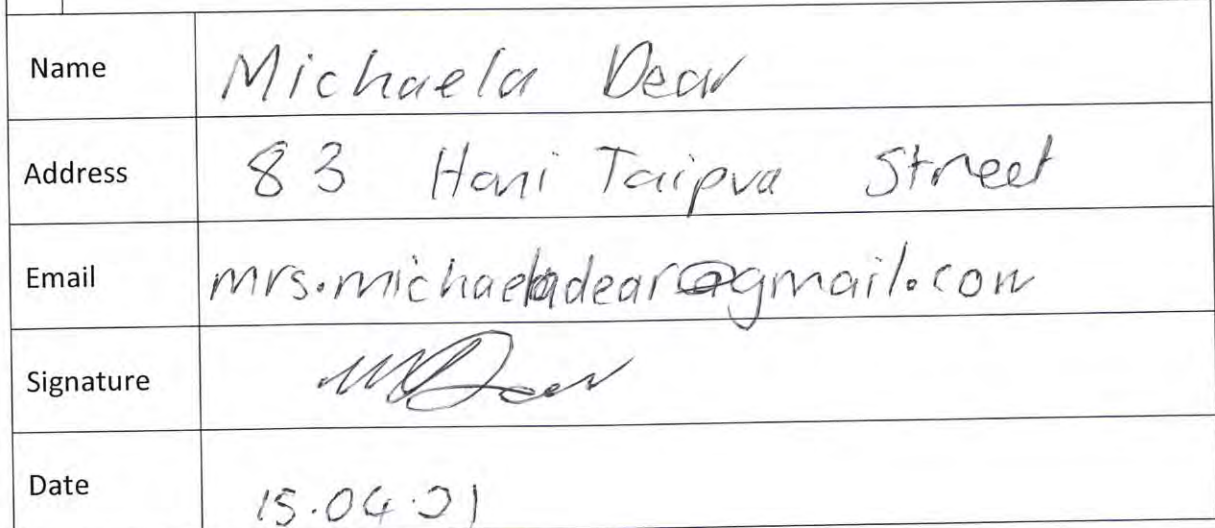 Name Michaela Dear
Address 83 Hani Taipua Street
Email mrs.michaeladear@gmail.com
Signature MDear
Date 15.04.21